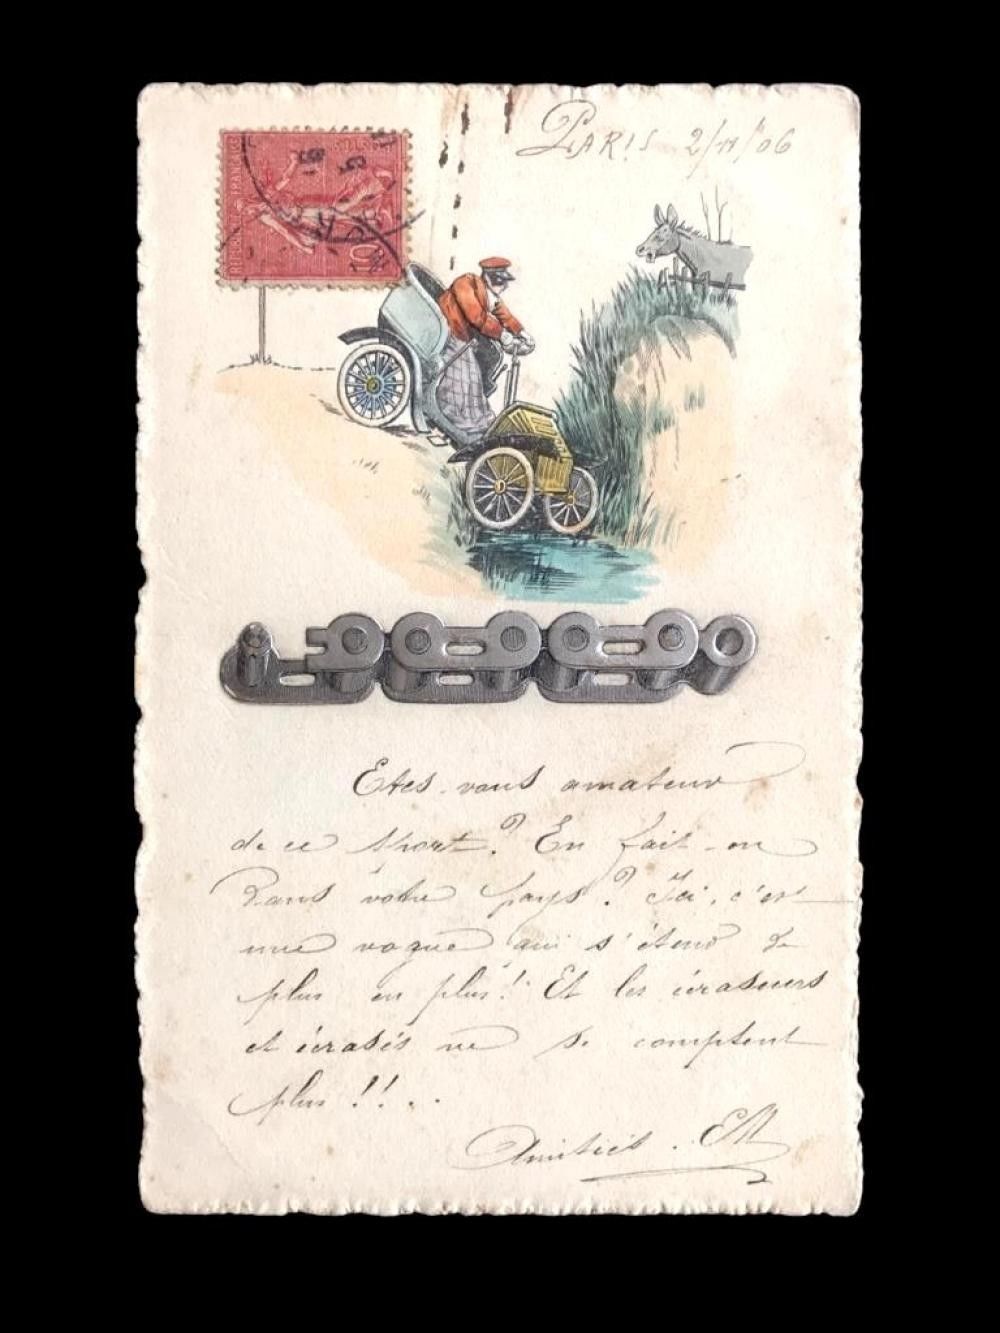 PARIS 2/11/06
10
Etes-vous amateur
de ce sport? En fait-on
dans votre pays? Ici, c'est
une vogue qui s'étend de
plus en plus! Et les écraseurs
et écrasés ne se comptent
plus!!..
Amitiés. EM